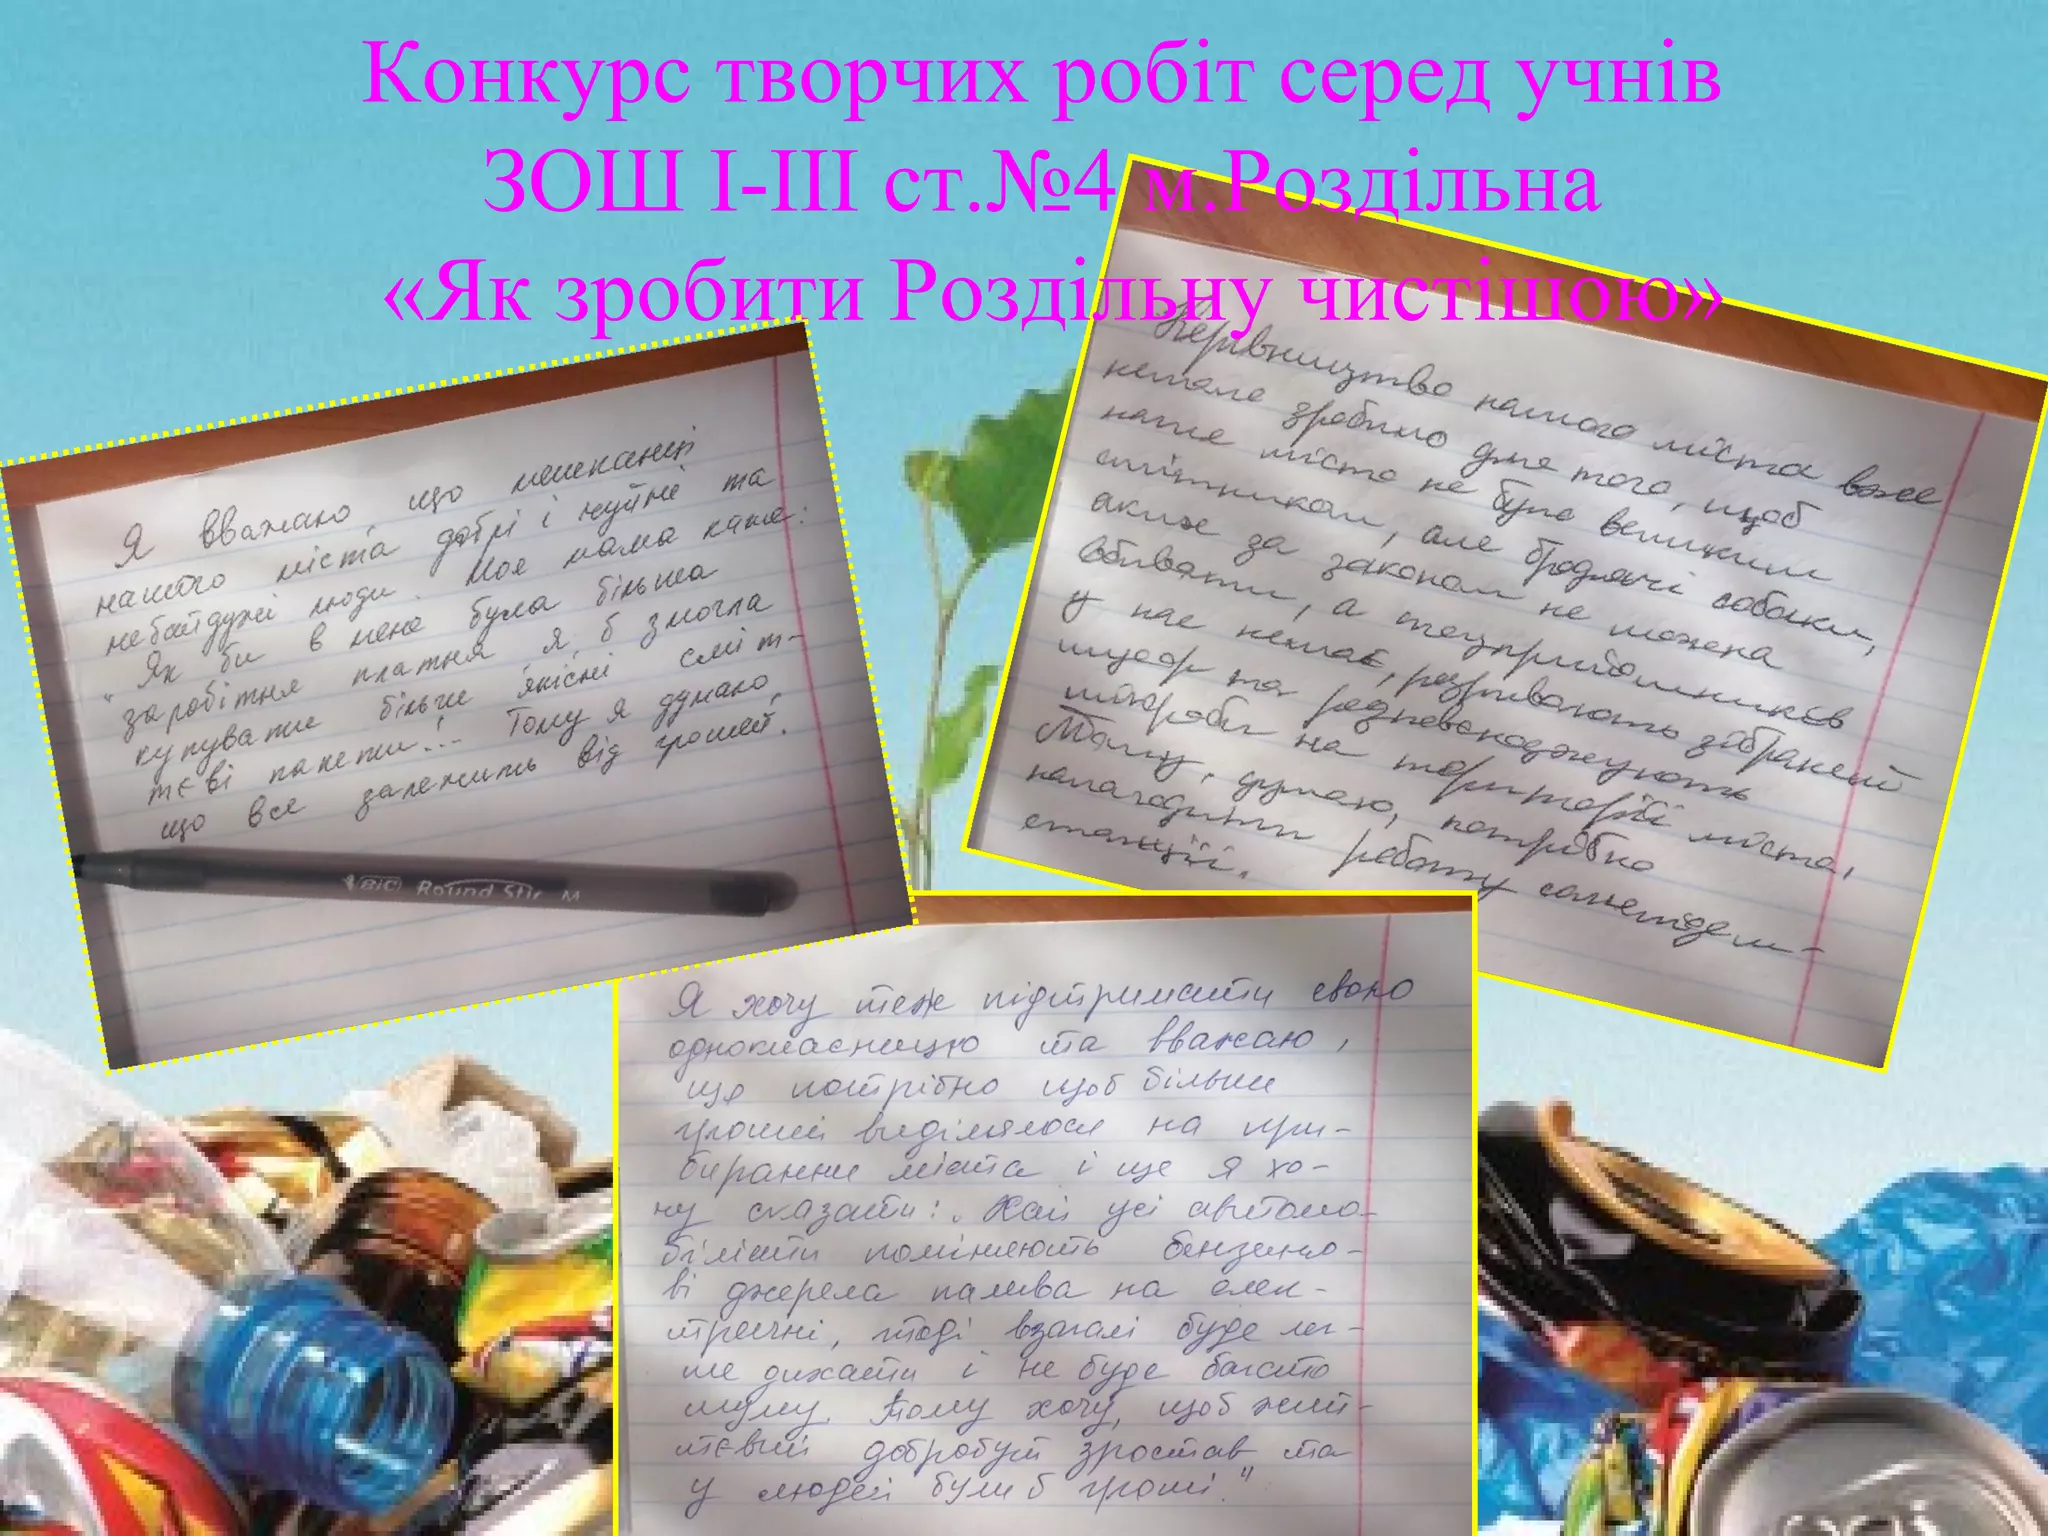 Конкурс творчих робіт серед учнів
ЗОШ І-ІІІ ст.№4 м.Роздільна
«Як зробити Роздільну чистішою»
Я вважаю, що мешканці
нашого міста добрі і чуйні та
небайдужі люди. Моя мама каже:
"Як би в мене була більша
заробітня платня я б змогла
купувати більше якісні сміт-
тєві пакети!... Тому я думаю,
що все залежить від грошей.
BIC Round Stic M
Керівництво нашого міста вже
немало зробило для того, щоб
наше місто не було великим
смітником, але бродячі собаки,
яких за законом не можна
вбивати, а техприйомників
у нас немає, розривають зібраний
мусор та розповсюджують
мікроби на території міста,
Тому, думаю, потрібно
налагодити роботу санепідем-
станції.
Я хочу теж підтримати свою
однокласницю та вважаю,
що потрібно щоб більше
грошей виділялося на при-
бирання міста і ще я хо-
чу сказати: "Хай усі автомо-
білісти поміняють бензино-
ві джерела палива на елек-
тричні, тоді взагалі буде лег-
ше дихати і не буде багато
шуму. Тому хочу, щоб жит-
тєвий добробут зростав та
у людей були б гроші."